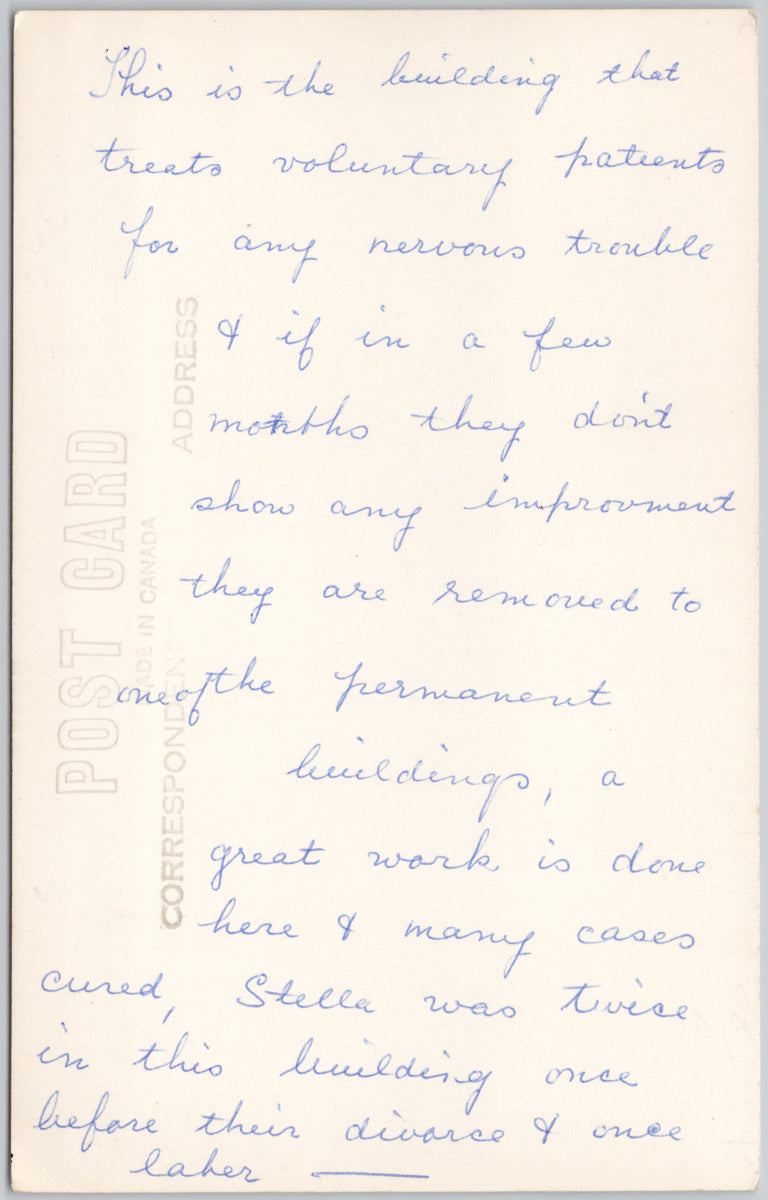 This is the building that
treats voluntary patients
for any nervous trouble
& if in a few
months they don't
show any improvment
they are removed to
one of the permanent
buildings, a
great work is done
here & many cases
cured, Stella was twice
in this building once
before their divorce & once
later
POST CARD
MADE IN CANADA
CORRESPONDENCE
ADDRESS